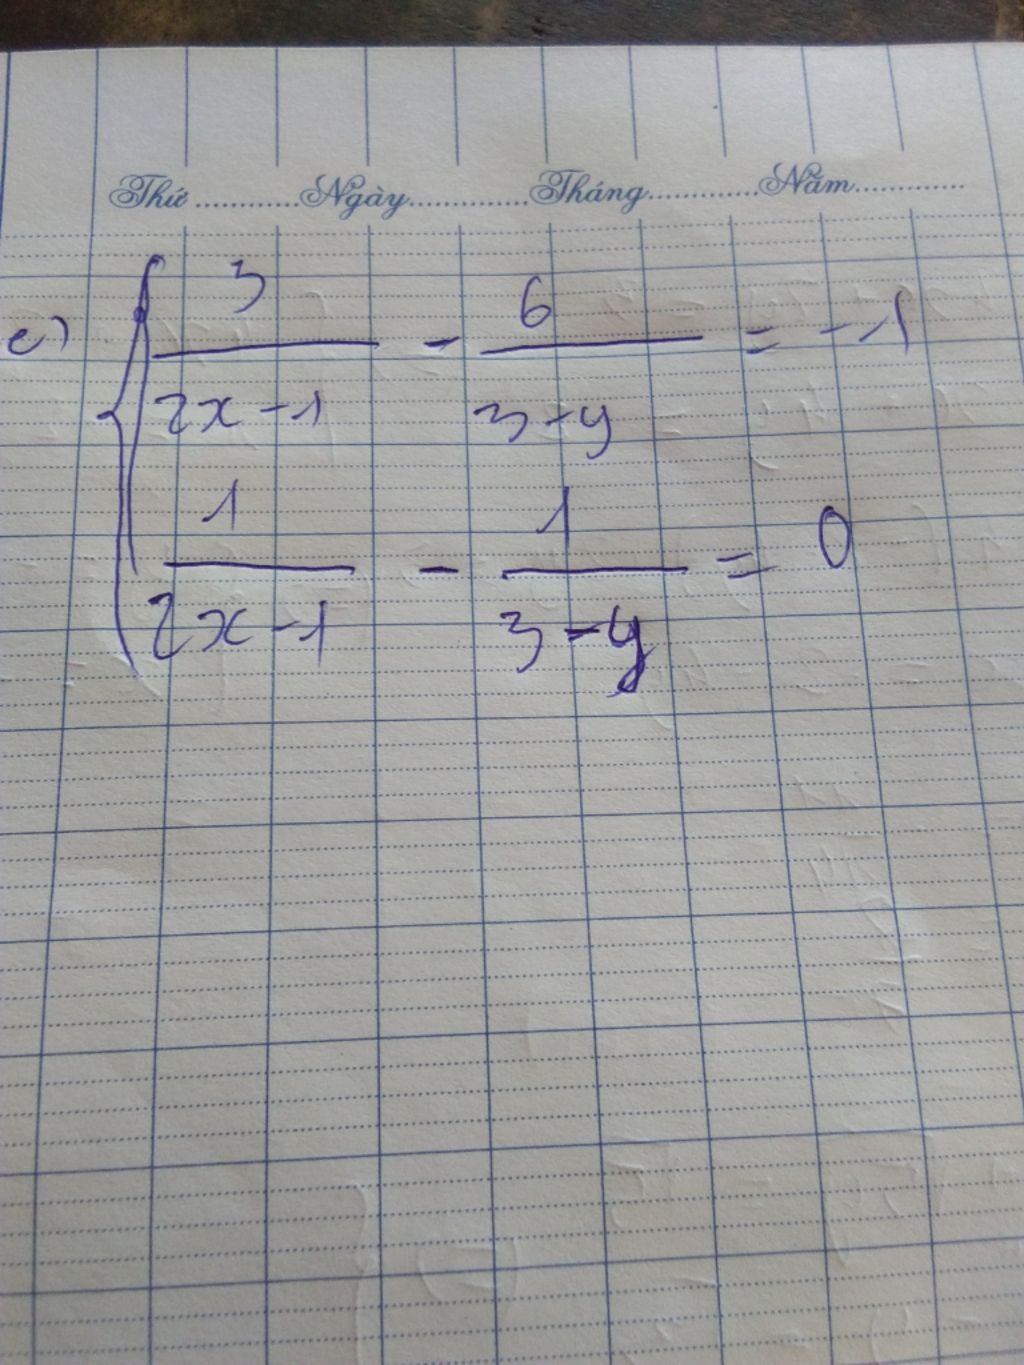 Thứ ............ Ngày ............. Tháng ............ Năm ............
c) { 3/(2x-1) - 6/(3-y) = -1
1/(2x-1) - 1/(3-y) = 0